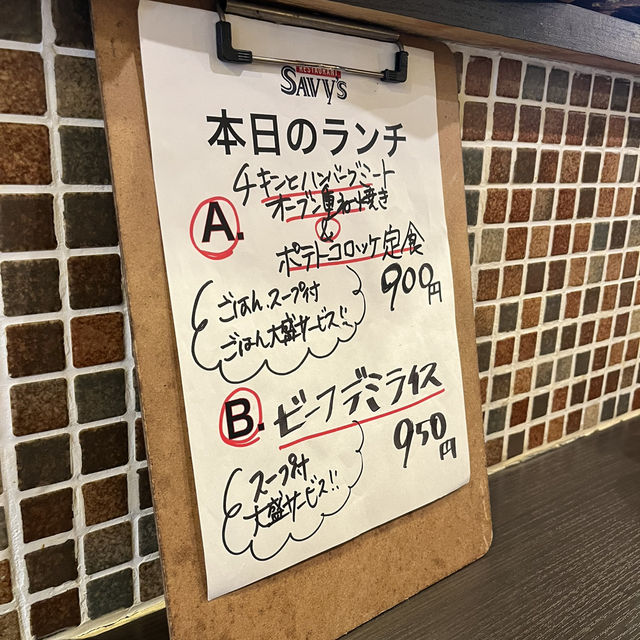 RESTAURANT
SAVVY'S
本日のランチ
A.
チキンとハンバーグミート
オーブン重ね焼き
&
ポテトコロッケ定食
900円
ごはん、スープ付
ごはん大盛サービス!!
B. ビーフデミライス
950円
スープ付
大盛サービス!!